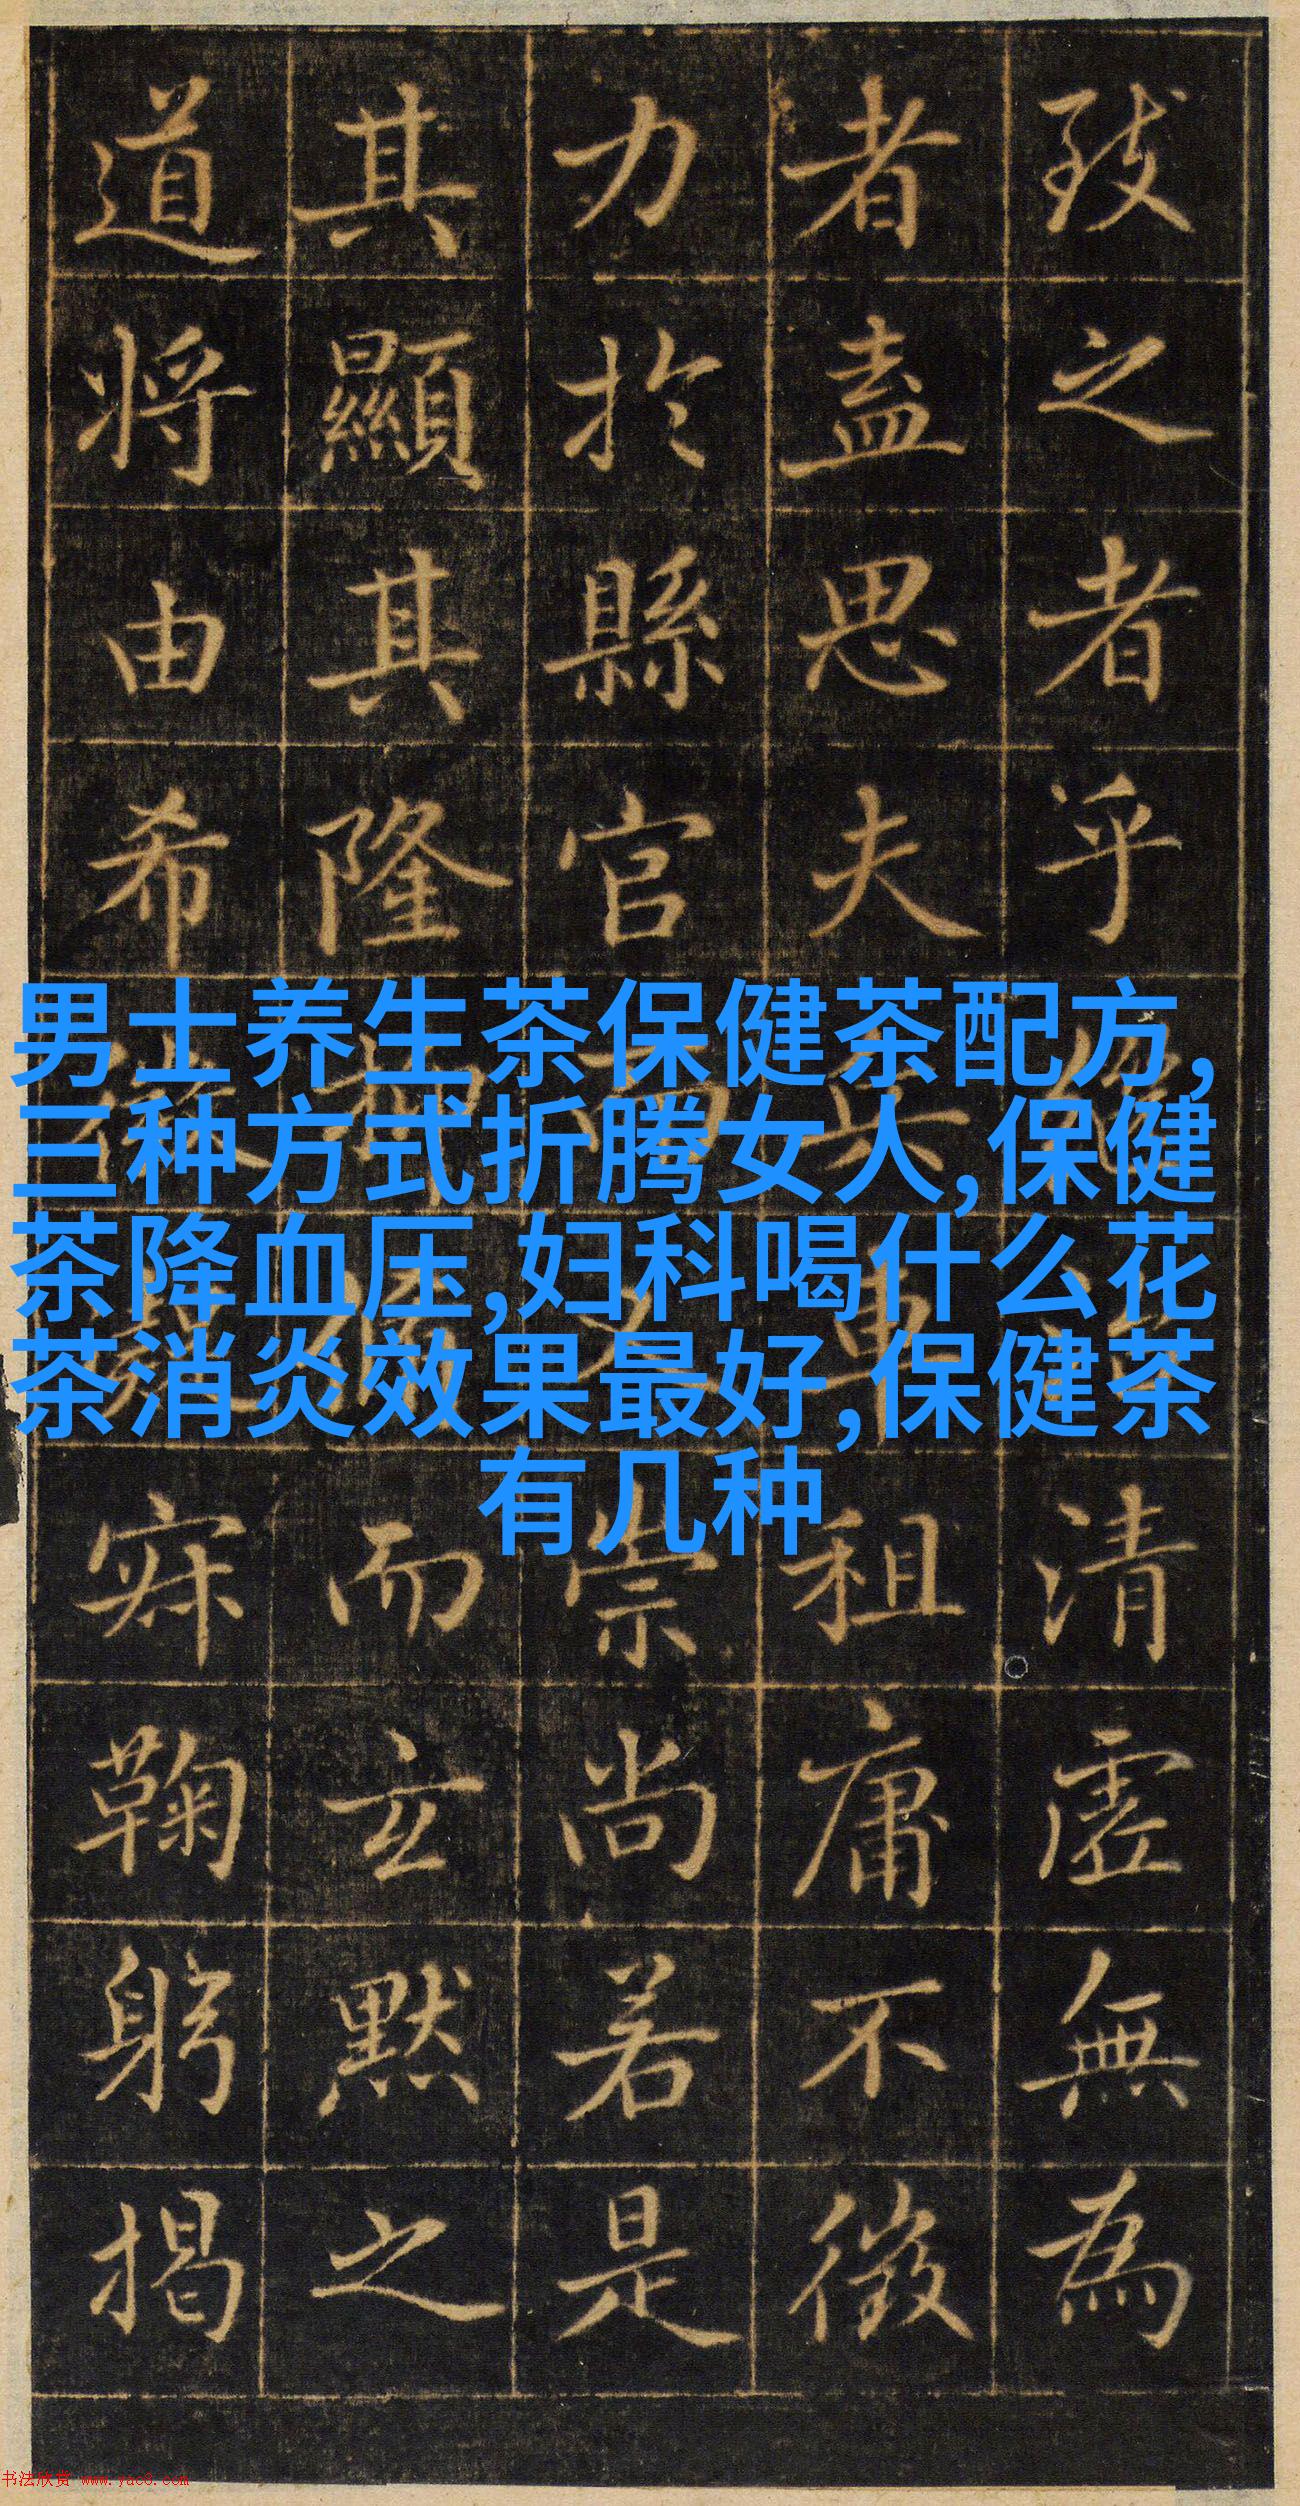 致之者乎清虛無為
者盡思夫兵車租庸不徵
力於縣官而崇尚若是
其顯其隆而玄默之
道將由希微寂鞠躬揭
男士养生茶保健茶配方,
三种方式折腾女人,保健
茶降血压,妇科喝什么花
茶消炎效果最好,保健茶
有几种
书法欣赏 www.yac8.com